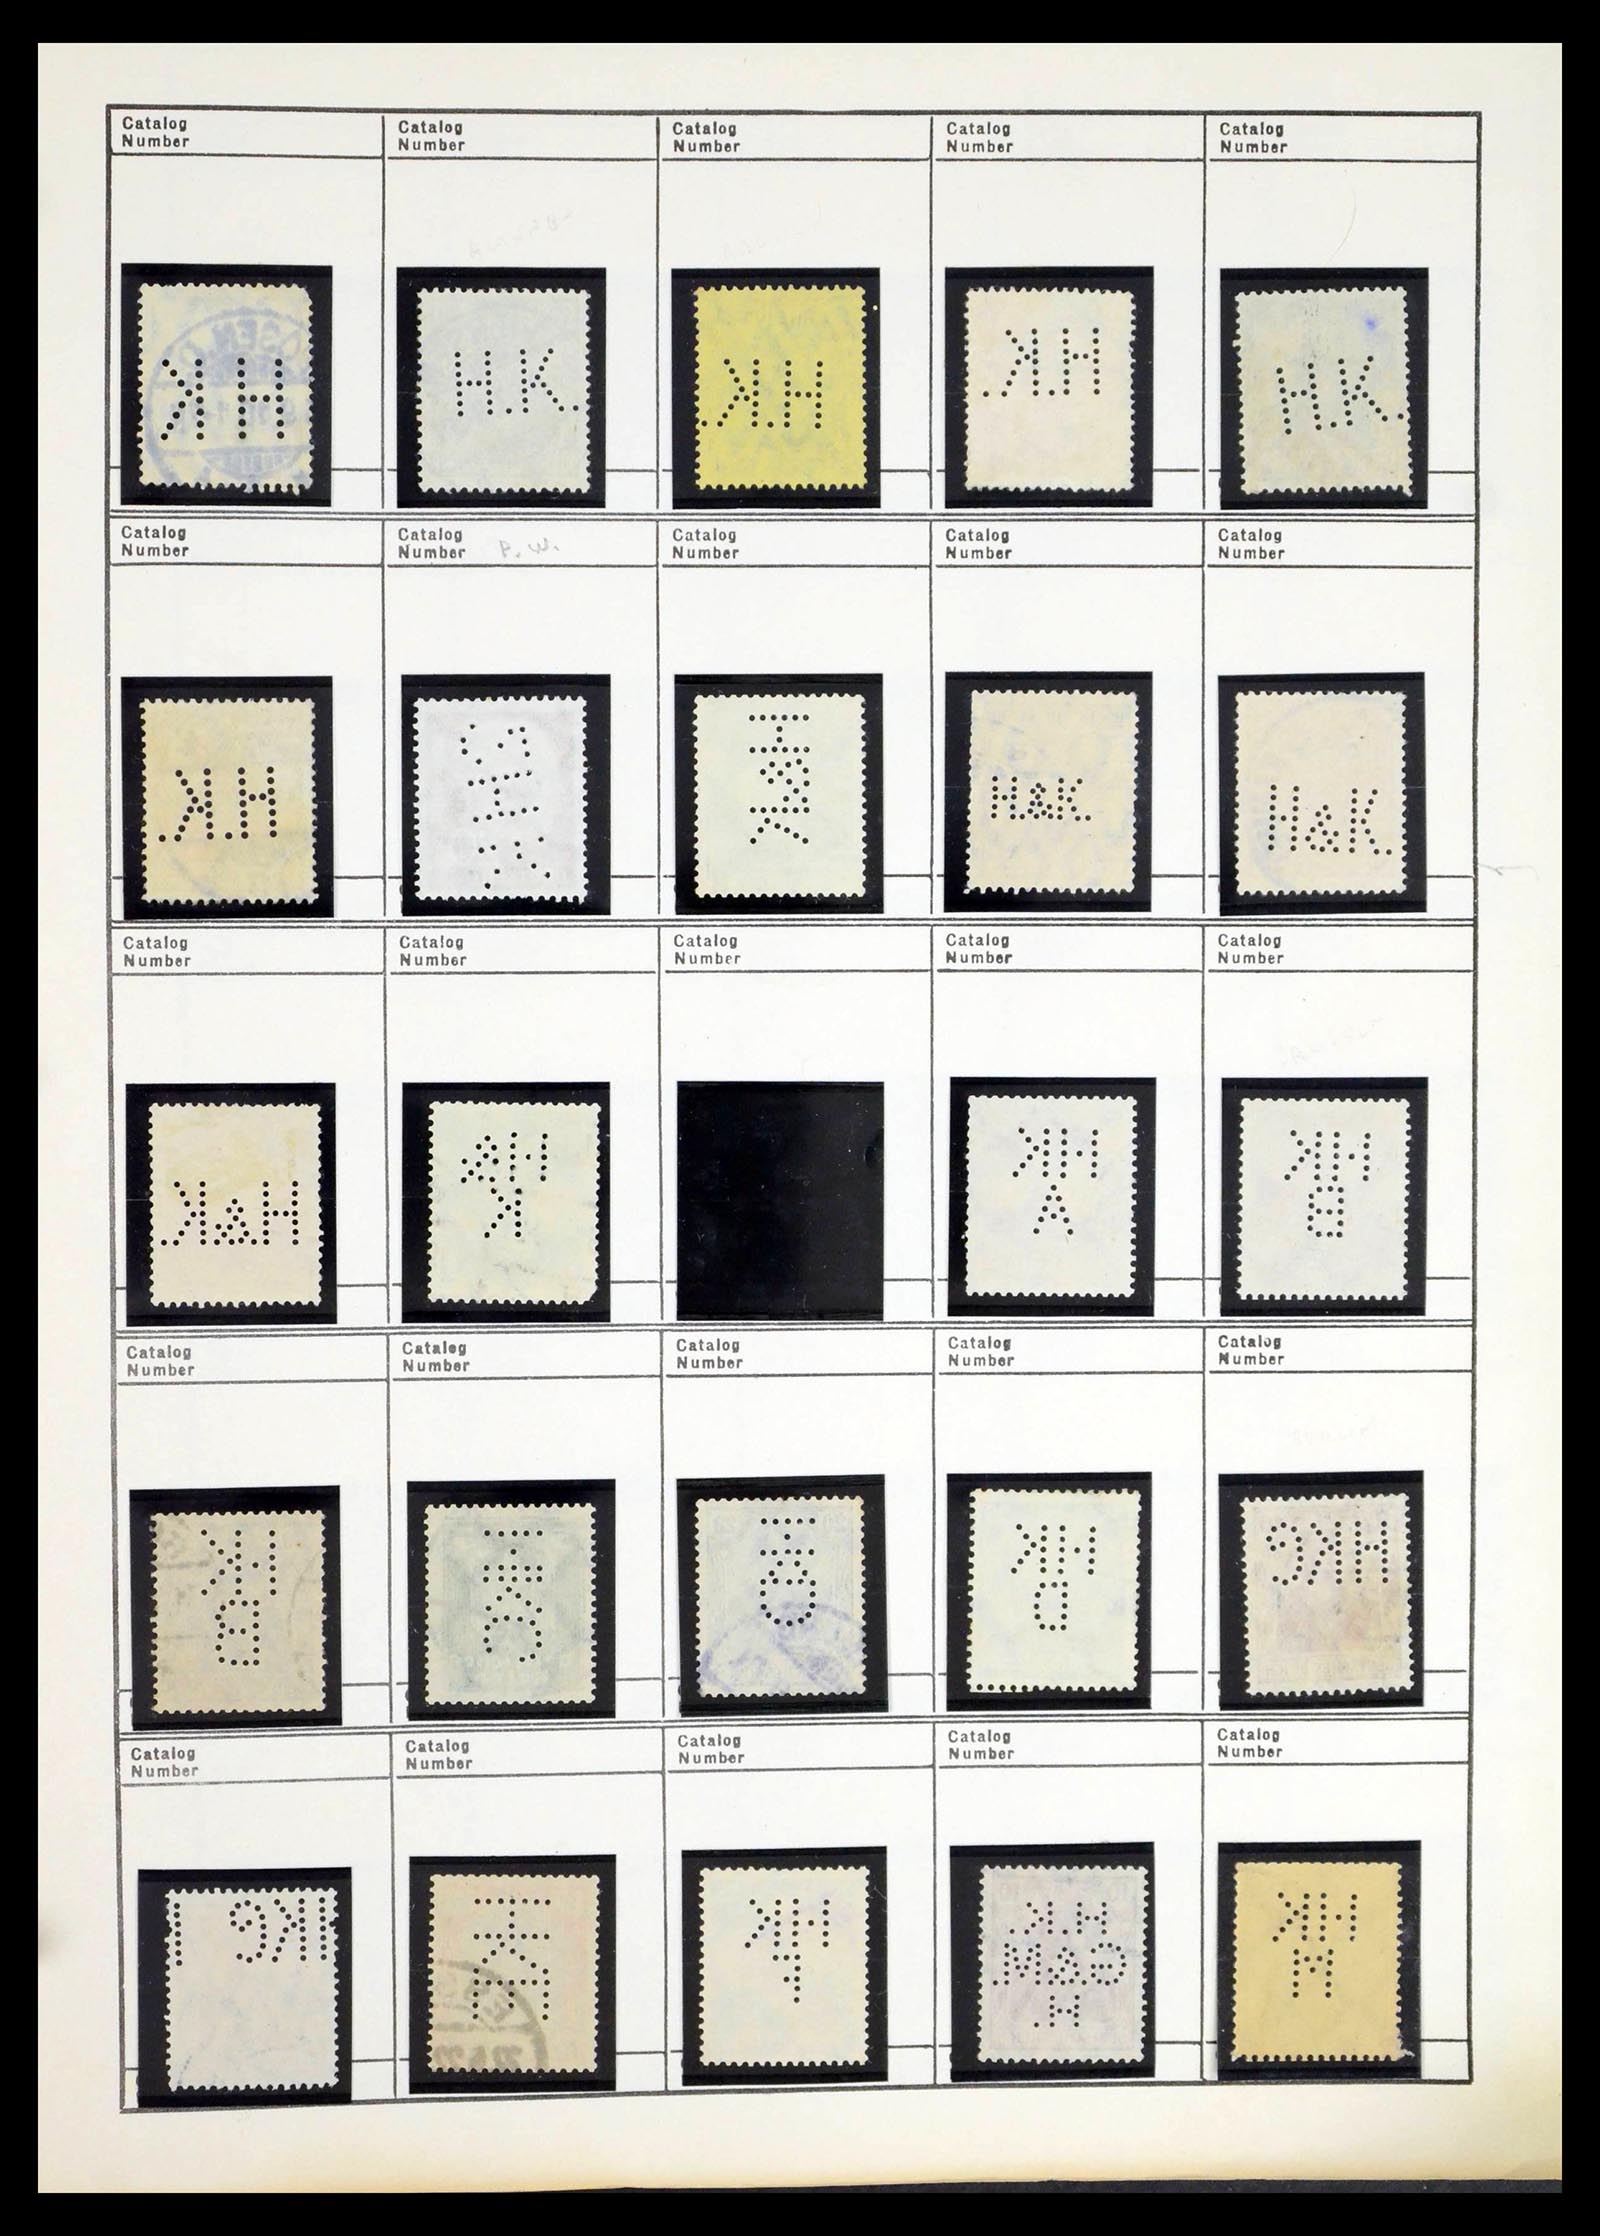 Catalog Number
Catalog Number
Catalog Number
Catalog Number
Catalog Number
HK
H.K.
H.K.
H.K.
H.K.
Catalog Number
Catalog Number P.W.
Catalog Number
Catalog Number
Catalog Number
H.K.
H&K
H&K.
H&K.
Catalog Number
Catalog Number
Catalog Number
Catalog Number
Catalog Number
H.&K.
H&
K
HK
A
HK
B
Catalog Number
Catalog Number
Catalog Number
Catalog Number
Catalog Number
HK
B
HK
C
HK
D
HKG
Catalog Number
Catalog Number
Catalog Number
Catalog Number
Catalog Number
HKG
HK
HK
H.K.
G&M.
H.
HK
M